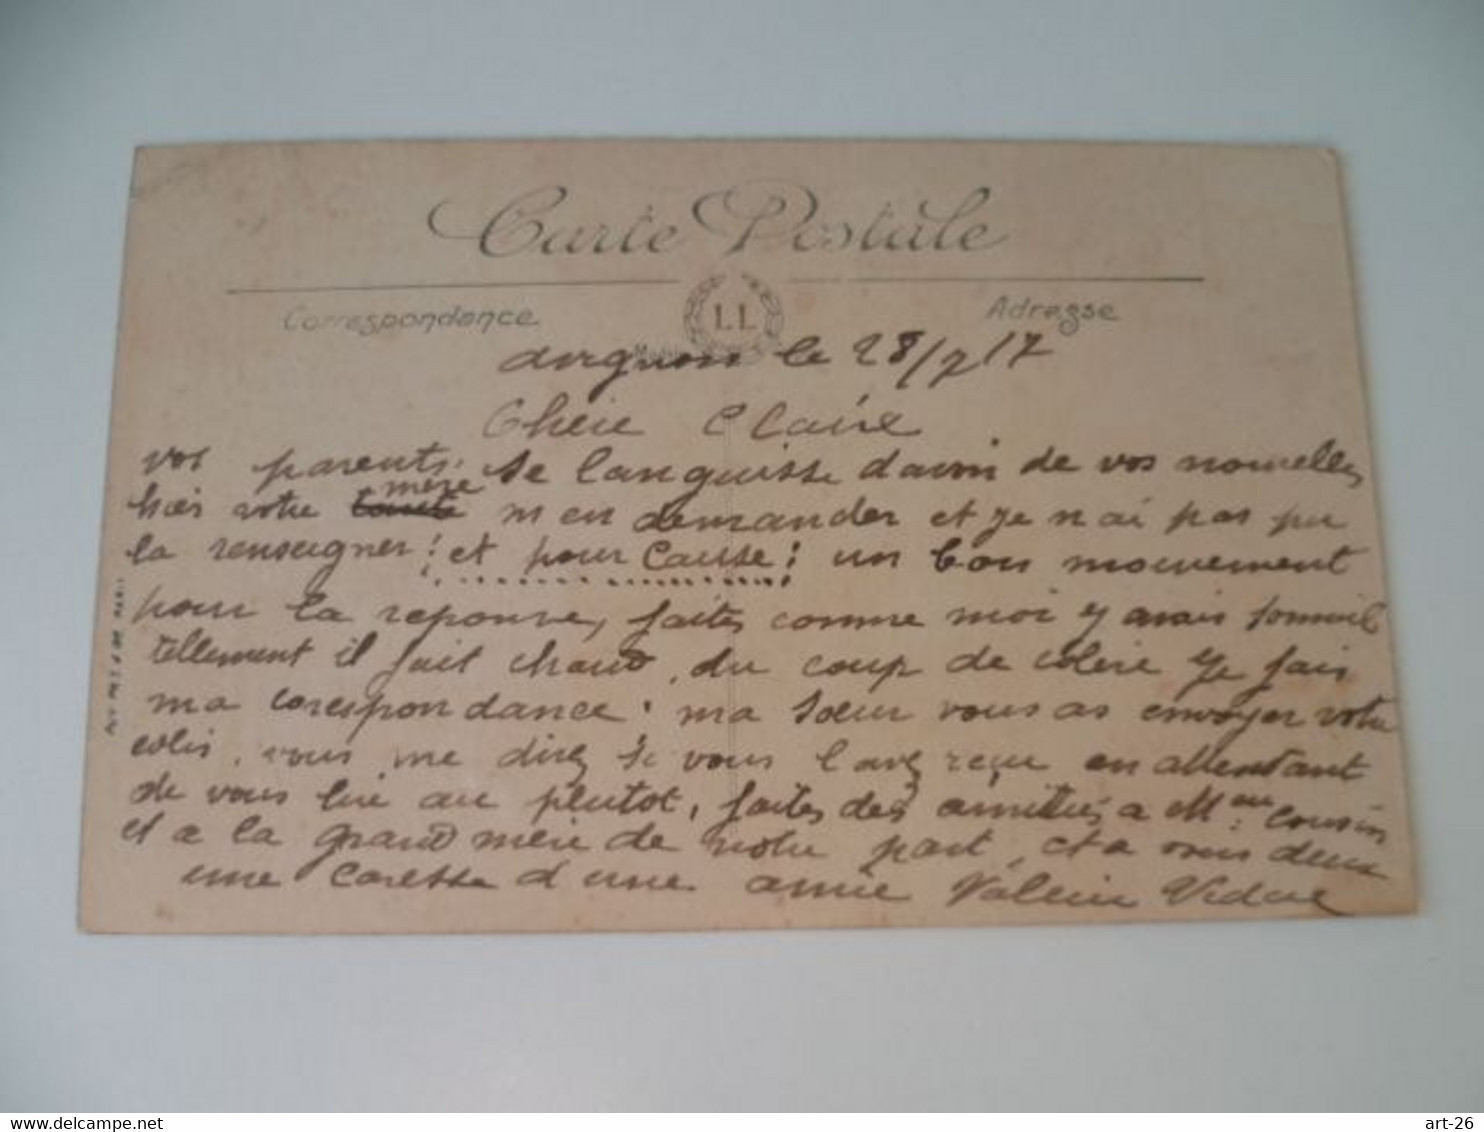 Carte Postale
Correspondance
Adresse
LL
avignon le 28/7/17
Chere Claire
vos parents se languisse davoir de vos nouvelles
hier votre mère m en demander et je n ai pas pu
la renseigner! et pour Cause! un bon mouvement
pour la reponse, faites comme moi j avais sommeil
tellement il fait chaud, du coup de colère je fais
ma corespondance. ma soeur vous as envoyer votre
colis, vous me direz si vous l avez reçu en attendant
de vous lire au plutot, faites des amitiés a Mme Cousin
et a la grand mère de notre part, et a vous deux
une caresse d une amie Valerie Vidal
Delcampe.net
art-26